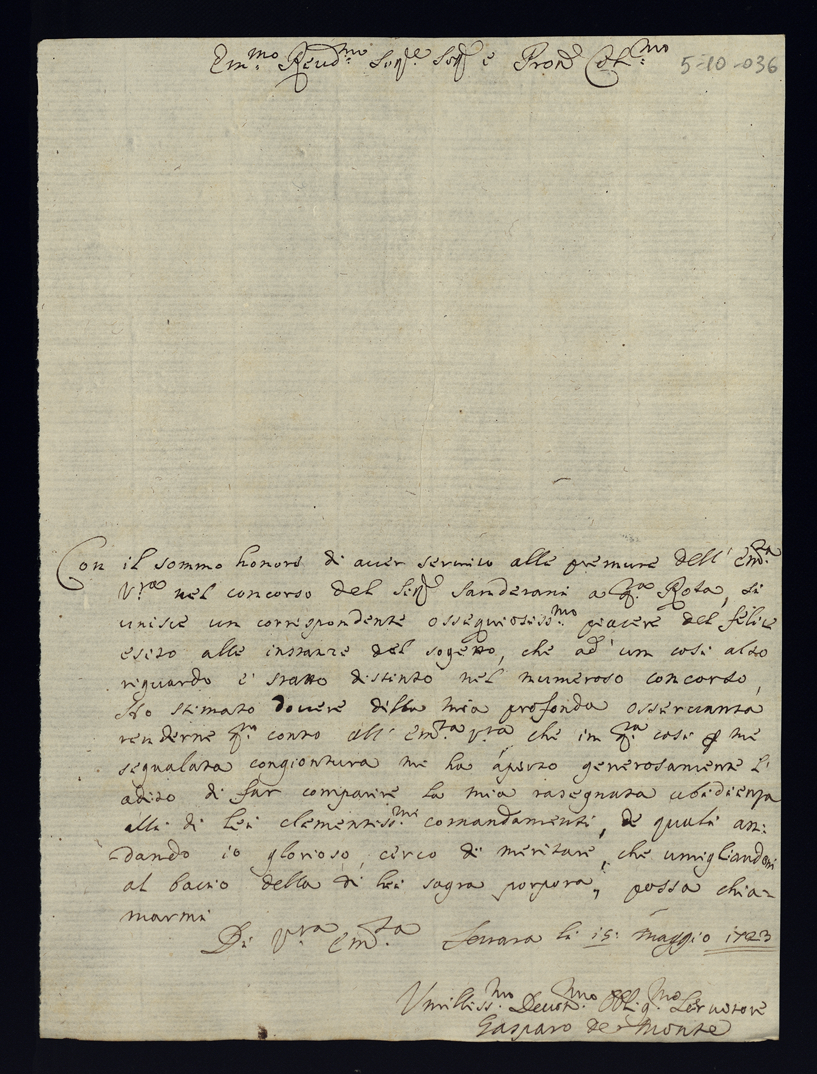 Em.mo Reud.mo Sig.re Sig.r e Pron.e Col.mo
5-10-036
Con il sommo honore di auer seruito alle premure dell' Em.za
V.ra nel concorso del Sig.r Sanderani a q.ta Rota, si
unisce un correspondente ossequiosiss.mo piacere del felice
esito alle instanze del sogetto, che ad' um cosi alto
riguardo è statto distinto nel numeroso concorso,
Ho stimato douere della mia profonda osseruanza
renderne q.to conto all' Em.za V.ra che in q.ta cosi p me
segnalata congiontura mi ha aperto generosamente l'
adito di far comparire la mia rasegnata ubidienza
alli di lei clementiss.mi comandamenti, de quali an:
dando io glorioso, cerco di meritare, che umigliandomi
al bacio della di lei sagra porpora, possa chia-
marmi
Di V.ra Em.za Ferrara li 15: Maggio 1723
Vmilliss.mo Deuot.mo Obl.ig.mo Seruitore
Gasparo de Monte